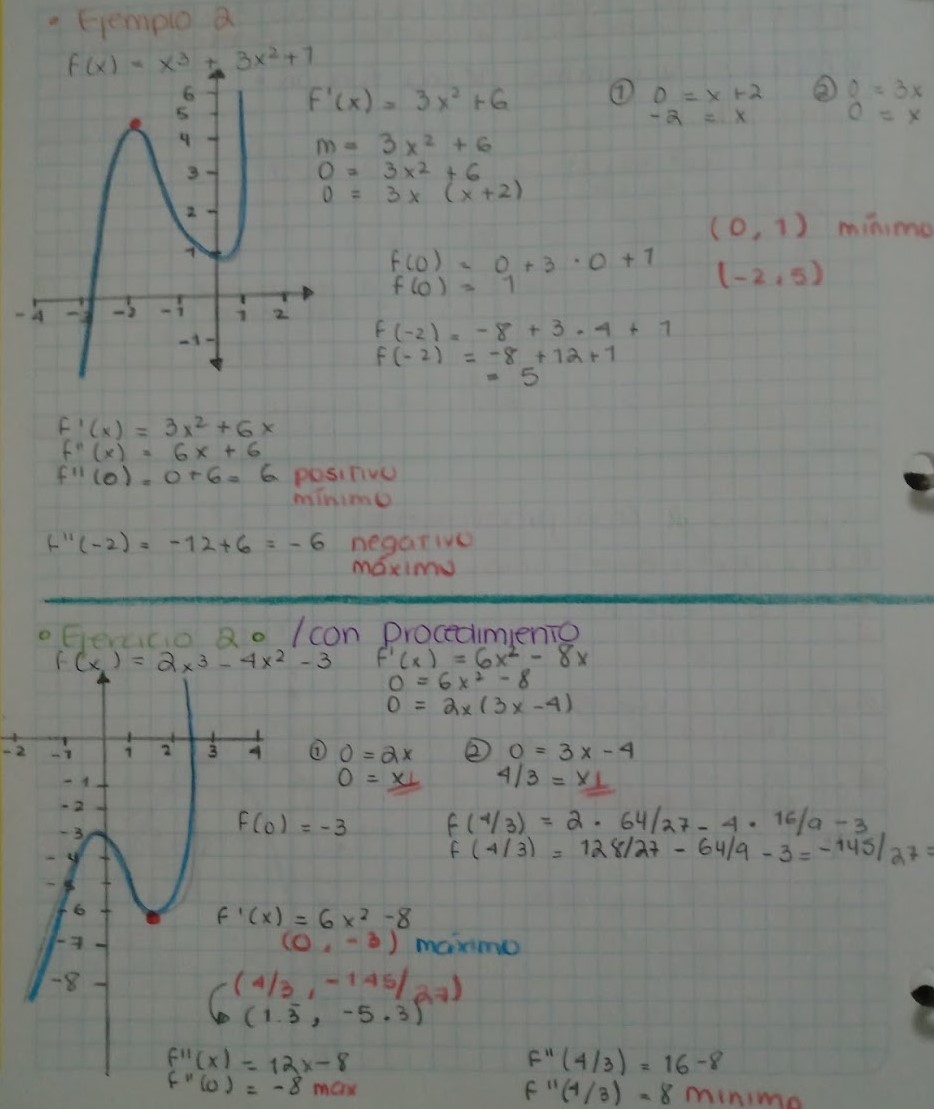 • Ejemplo 2
f(x) = x3 + 3x2+1
6
5
4
3
2
1
-4 -3 -2 -1 1 2
-1
F'(x) = 3x2 +6
m = 3x2 + 6
0 = 3x2 + 6
0 = 3x (x+2)
① 0 = x+2
-2 = x
② 0 = 3x
0 = x
(0, 1) mínimo
(-2, 5)
f(0) = 0 + 3 · 0 + 1
f(0) = 1
f(-2) = -8 + 3 · 4 + 1
f(-2) = -8 +12+1
= 5
f'(x) = 3x2 + 6x
f"(x) = 6x + 6
f"(0) = 0+6 = 6 positivo
mínimo
f"(-2) = -12+6 = -6 negativo
máximo
• Ejercicio 2 • /con Procedimiento
f(x) = 2x3 - 4x2 - 3
F'(x) = 6x2 - 8x
0 = 6x2 - 8
0 = 2x(3x-4)
-2 -1 1 2 3 4
-1
-2
-3
-4
-5
-6
-7
-8
① 0 = 2x
0 = x
② 0 = 3x - 4
4/3 = x
f(0) = -3
f(4/3) = 2 · 64/27 - 4 · 16/9 - 3
f(4/3) = 128/27 - 64/9 - 3 = -145/27 =
F'(x) = 6x2 -8
(0, -3) máximo
(4/3, -145/27)
(1.3, -5.3)
f"(x) = 12x-8
f"(0) = -8 max
F"(4/3) = 16-8
f"(4/3) = 8 minimo